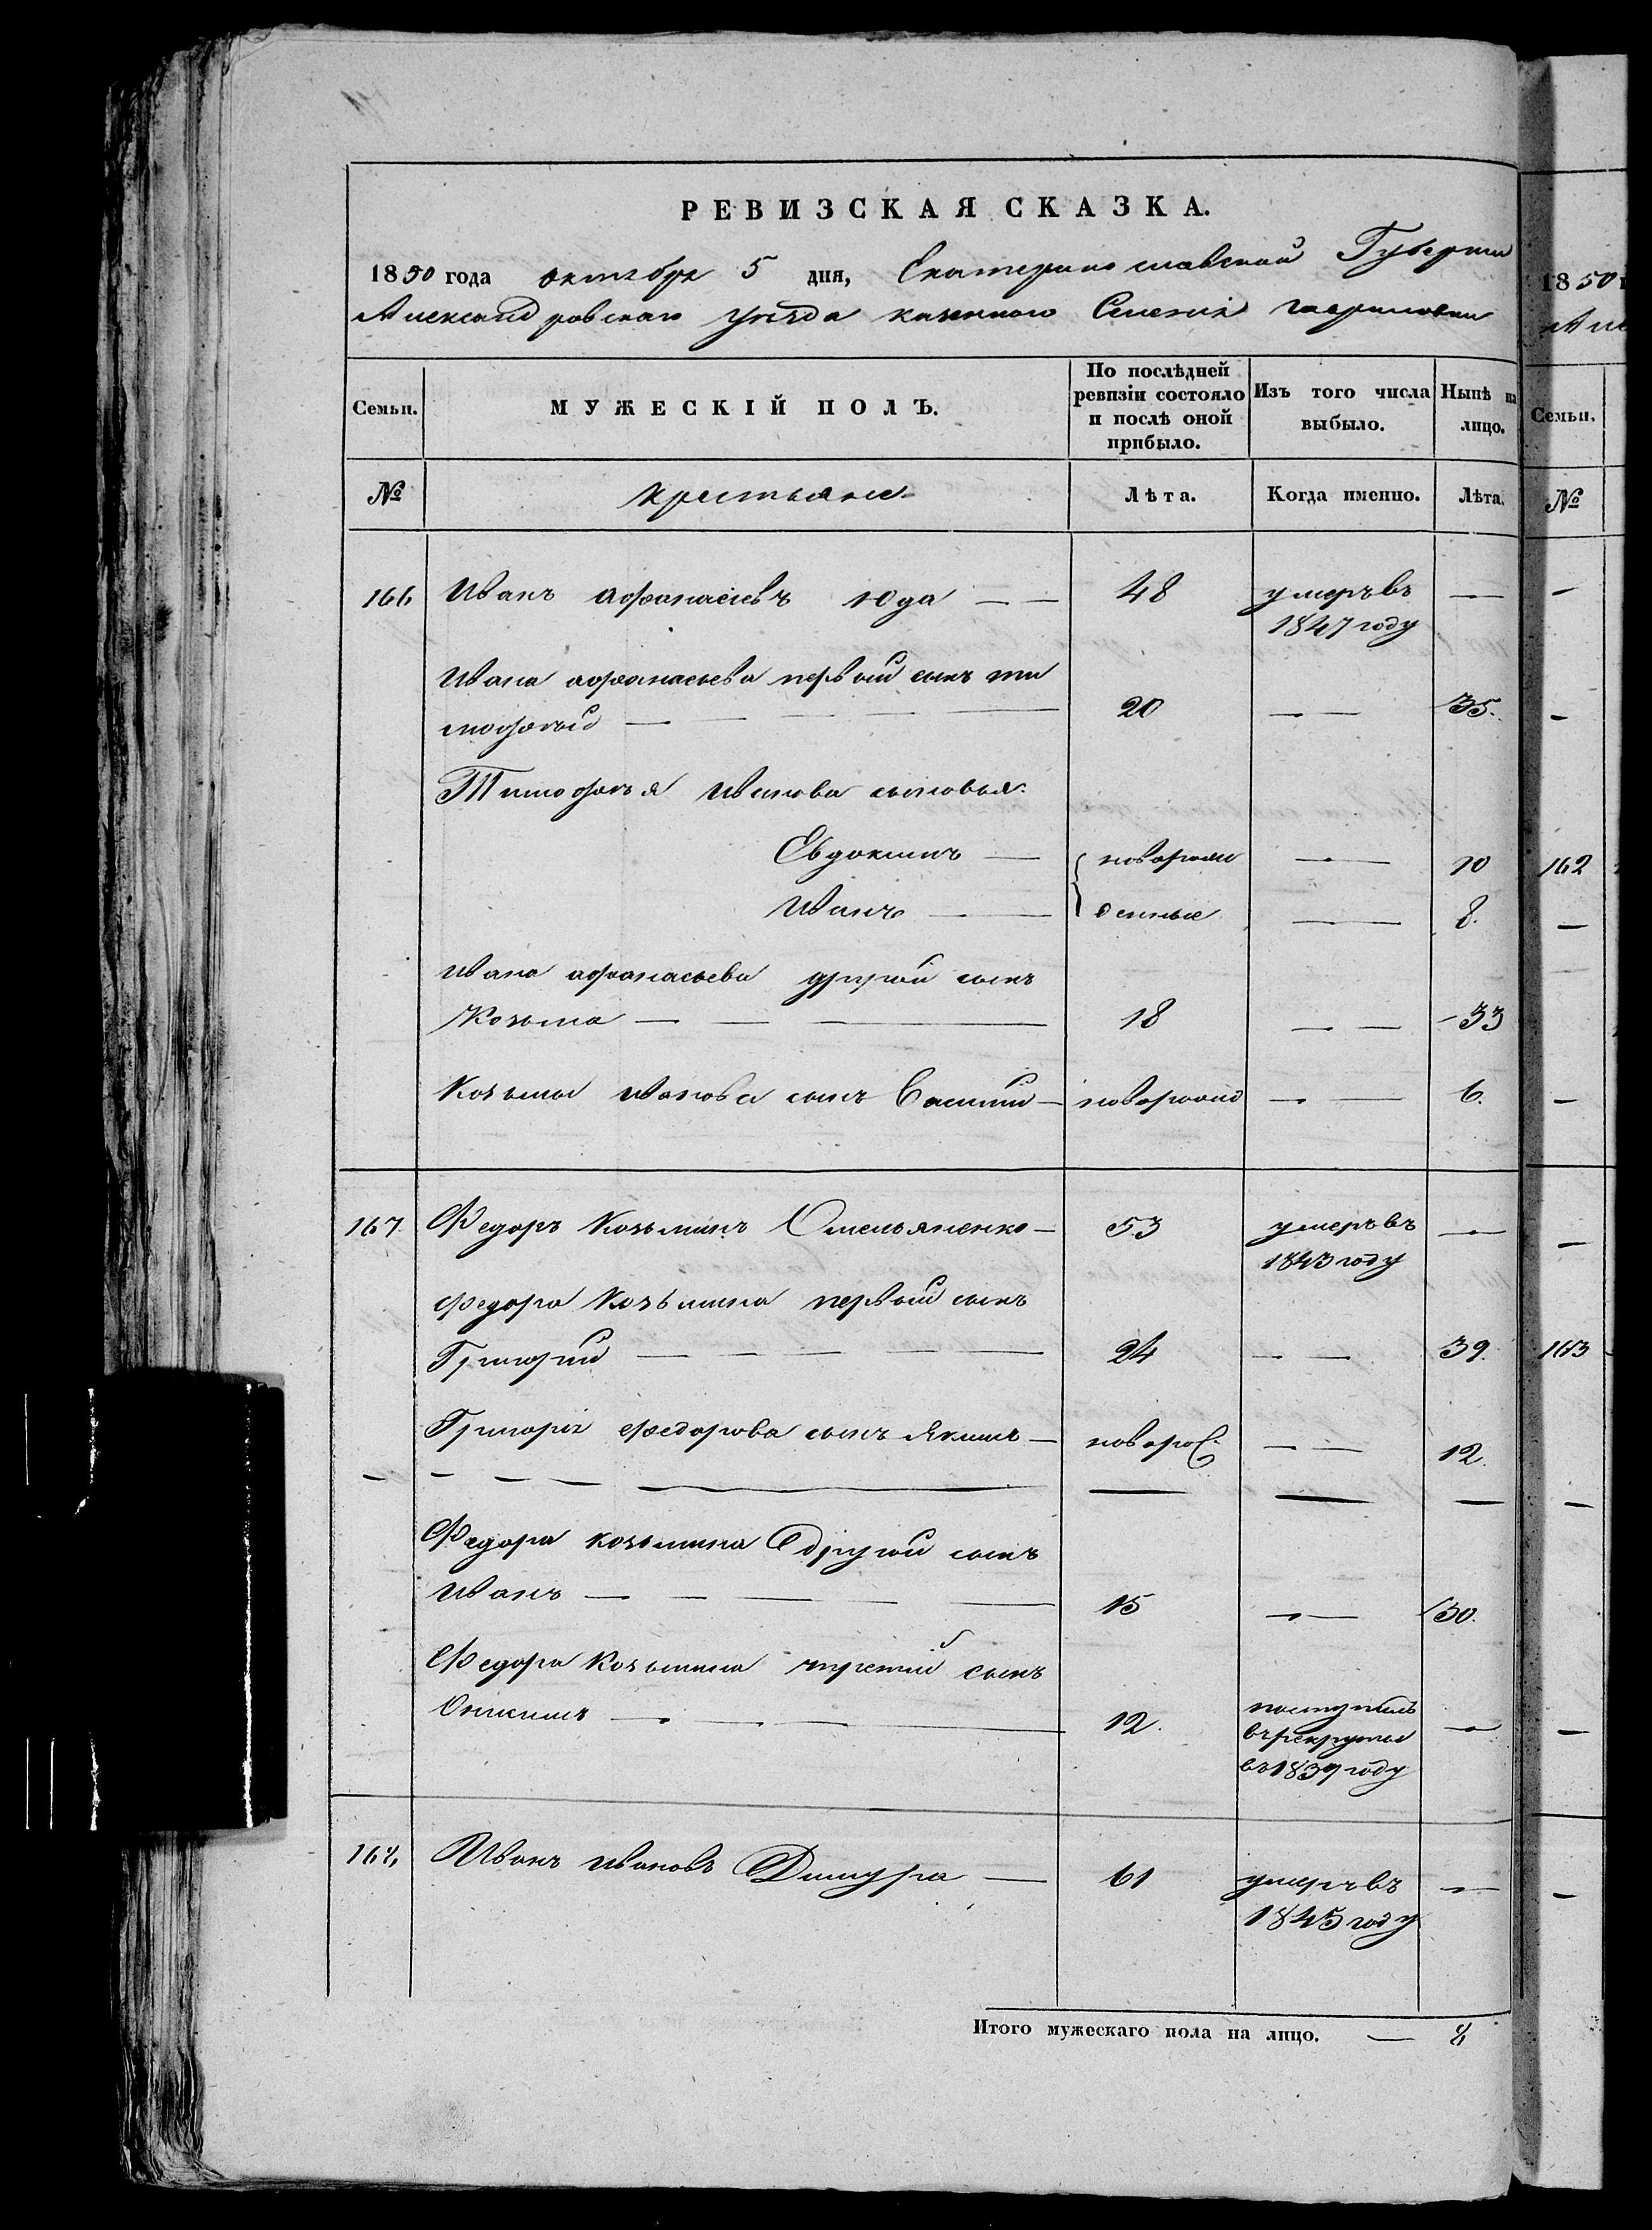 РЕВИЗСКАЯ СКАЗКА.
1850 года октября 5 дня, Екатеринославской Губернии
Александровскаго уѣзда казеннаго Селенія Гавриловки
Семьи. МУЖЕСКІЙ ПОЛЪ. По послѣдней ревизіи состояло и послѣ оной прибыло. Изъ того числа выбыло. Нынѣ на лицо.
№ крестьяне Лѣта. Когда именно. Лѣта.
166 Иванъ Афонасьевъ Юда — — 48 умеръ въ —
1847 году
Ивана афонасьева первый сынъ ти
мофѣй — — — — — 20 — — 35.
Тимофѣя Иванова сыновья
Евдокимъ — новорож — — 10
Иванъ — — денные — 8.
Ивана афонасьева другой сынъ
Козьма — — — 18 — — 33
Козьмы Иванова сынъ Василий — новорожд — — 6.
167 Федоръ Козьминъ Омельяненко — 53 умеръ въ —
1843 году
Федора Козьмина первый сынъ
Григорий — — — — — 24 — — 39.
Григорія Федорова сынъ Якимъ — новорож — — 12.
Федора козьмина другой сынъ
Иванъ — — — — — 15 — — 30.
Федора Козьмина третий сынъ
Онисимъ — — — 12. поступилъ —
въ рекруты
въ 1839 году
168 Иванъ Ивановъ — 61 умеръ въ —
1845 году
Итого мужескаго пола на лицо. — 8
1850
Але
Семьи.
№
162
163